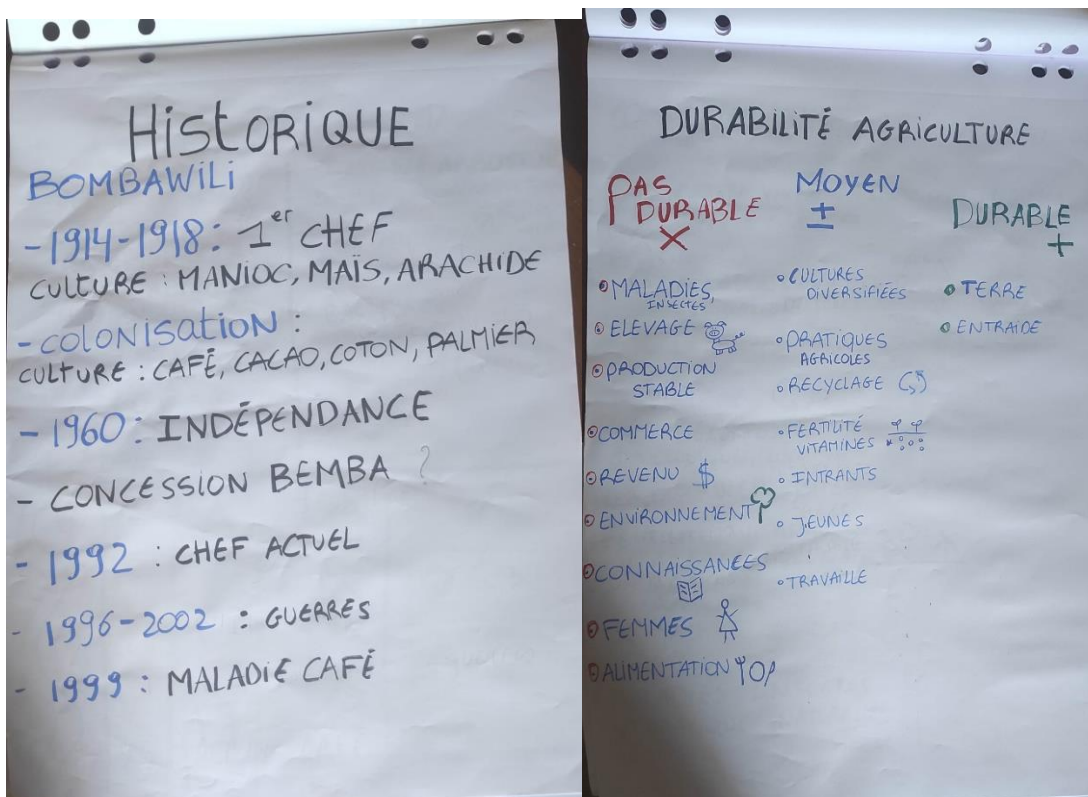 HistORiQUE
BOMBAWiLi
- 1914-1918: 1er CHEF
CULTURE : MANIOC, MAÏS, ARACHIDE
- COLONISATION :
CULTURE : CAFÉ, CACAO, COTON, PALMIER
- 1960: INDÉPENDANCE
- CONCESSION BEMBA ?
- 1992 : CHEF ACTUEL
- 1996-2002 : GUERRES
- 1999 : MALADIE CAFÉ
DURABILITÉ AGRICULTURE
PAS DURABLE
X
• MALADIES,
INSECTES
• ELEVAGE
• PRODUCTION
STABLE
• COMMERCE
• REVENU $
• ENVIRONNEMENT
• CONNAISSANCES
• FEMMES
• ALIMENTATION
MOYEN
±
• CULTURES
DIVERSIFIÉES
• PRATIQUES
AGRICOLES
• RECYCLAGE
• FERTILITÉ
VITAMINES
• INTRANTS
• JEUNES
• TRAVAILLE
DURABLE
+
• TERRE
• ENTRAIDE